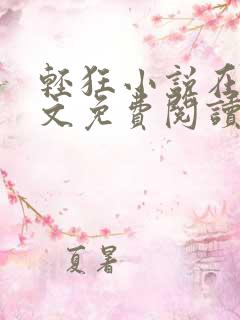 輕狂小說在
文免費閱讀
夏暑